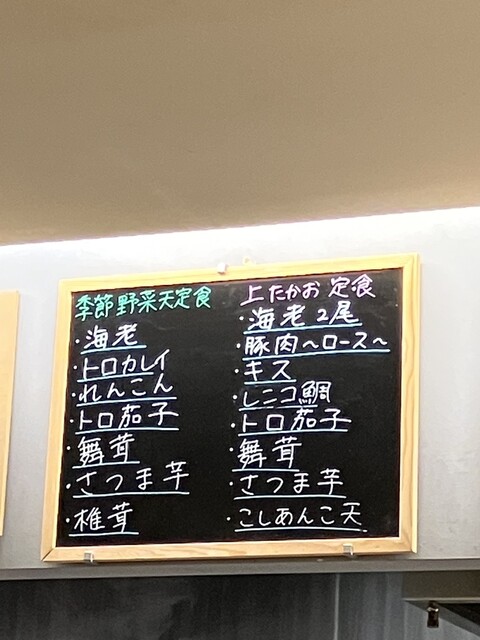 季節野菜天定食
・海老
・トロカレイ
・れんこん
・トロ茄子
・舞茸
・さつま芋
・椎茸
上たかお定食
・海老2尾
・豚肉〜ロース〜
・キス
・レンコ鯛
・トロ茄子
・舞茸
・さつま芋
・こしあんこ天